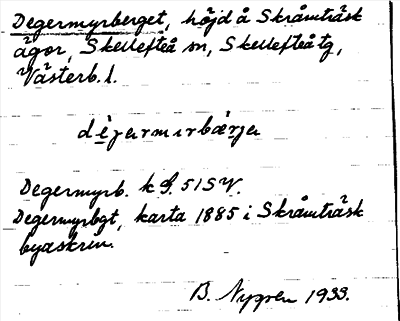 Degermyrberget, höjd å Skråmträsk
ägor, Skellefteå sn, Skellefteå tg,
Västerb. l.
dègarmırbærja
Degermyrb. k S. 51 SV.
Degermyrbgt, karta 1885 i Skråmträsk
byaskrin.
B. Nygren 1933.